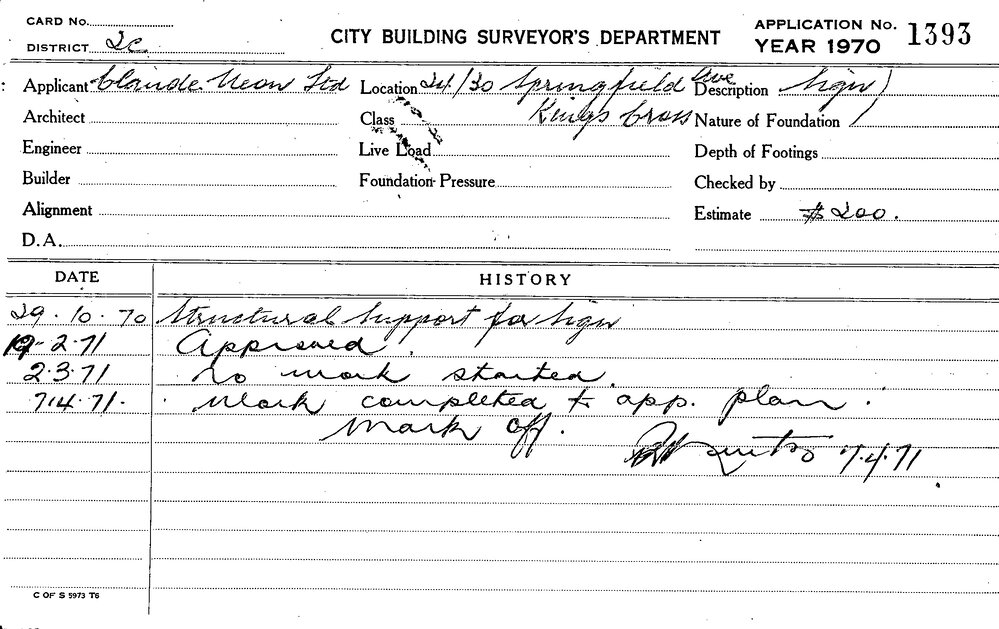 CARD No.
DISTRICT 2c
CITY BUILDING SURVEYOR'S DEPARTMENT
APPLICATION No. 1393
YEAR 1970
Applicant Claude Neon Ltd Location 24/30 Springfield Ave Description Sign
Architect Class Kings Cross Nature of Foundation
Engineer Live Load Depth of Footings
Builder Foundation Pressure Checked by
Alignment Estimate $200.
D.A.
DATE HISTORY
29.10.70 Structural Support for Sign
2.71 Approved.
2.3.71 No work started.
7.4.71. Work completed to app. plan.
Mark off.
7.4.71
C OF S 5973 T6